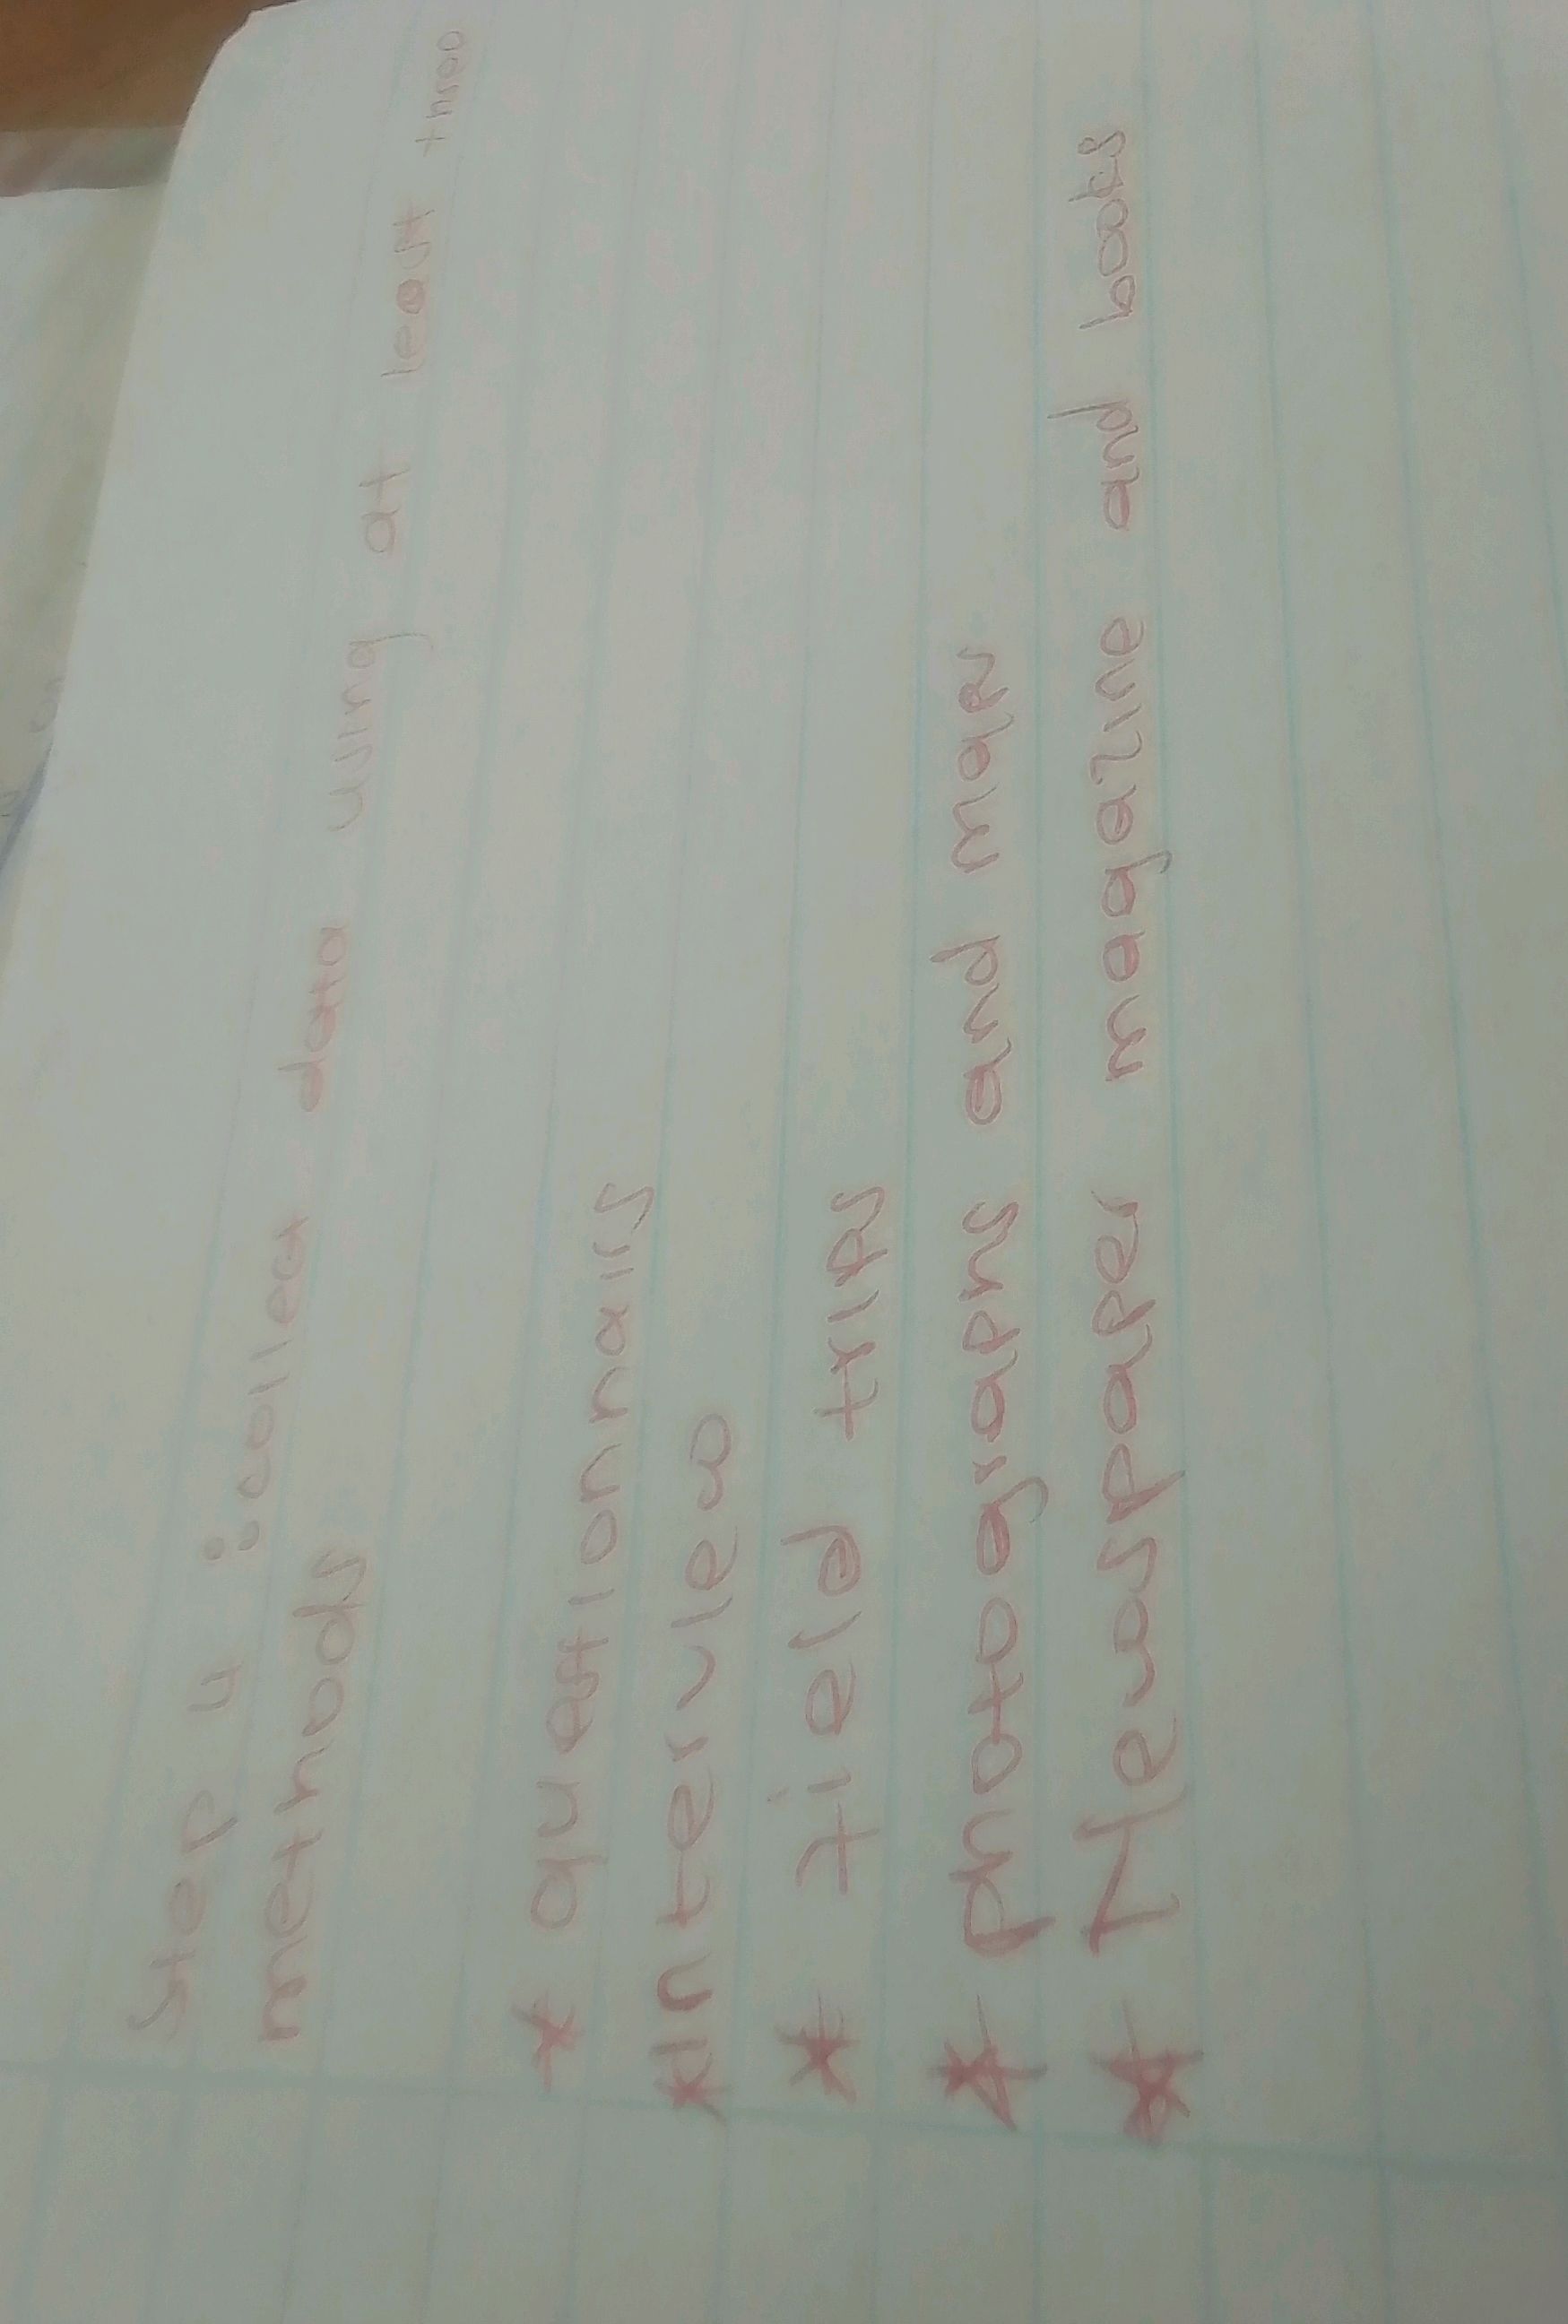 Step 4 : collect data using at least three
methods
* questionnairs
* Interview
* field trips
* photographs and maps
* Newspaper magazine and books